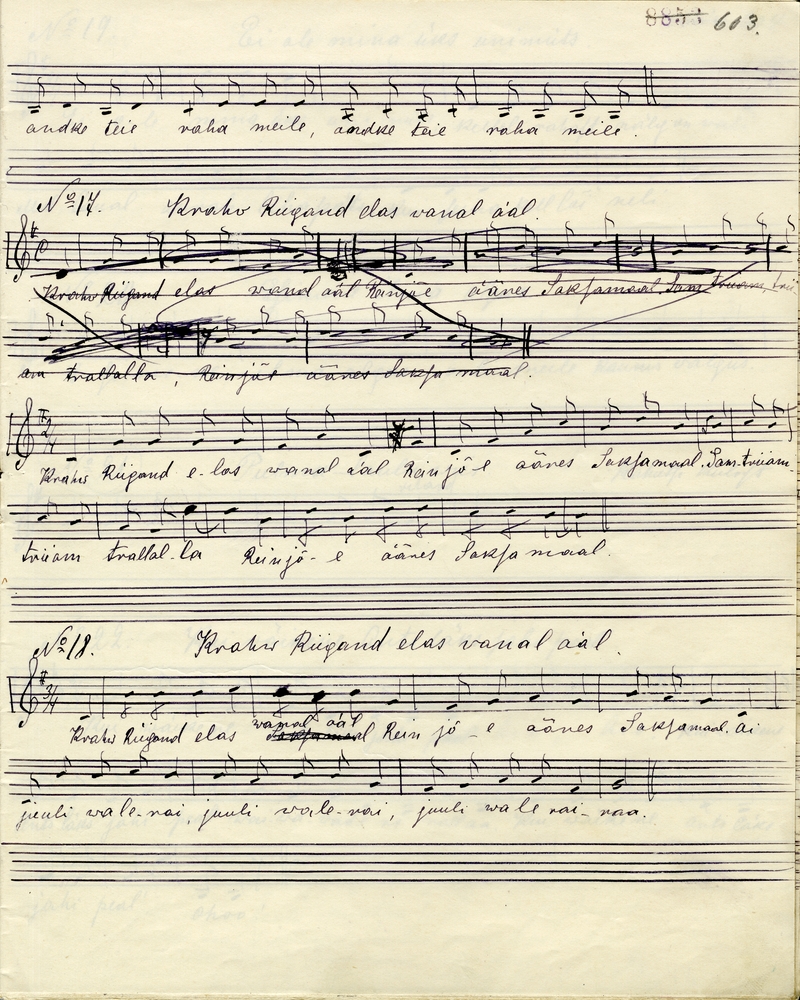 8854 603.
andke teie raha meile, andke teie raha meile.
No 17. Krahv Riigand elas vanal a'al.
Krahw Riigand elas wanal a'al Reinjõe äänes Sakjamaal. Sam triiam, trii
am trallalla, Reinjõe äänes Sakja maal.
2/4
Krahw Riigand e-las wanal a'al Reinjõ-e äänes Sakjamaal. Sam-triiam-
triiam trallal-la Reinjõ-e äänes Sakja maal.
No 18. Krahw Riigand elas vanal a'al.
3/4
wanal a'al
Krahw Riigand elas Sakjamaal Rein jõ-e äänes Sakjamaal. Ai
juuli wale-rai, juuli wale-rai, juuli wale rai-raa.